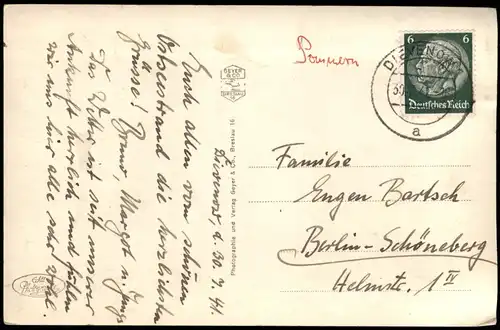 Dievenow, d. 30.7.41.
Euch allen vom schönen
Ostseestrand die herzlichsten
Grüsse! Bruno, Margot u.
Das Wetter ist seit unserer
Ankunft herrlich und fühlen
wir uns hier alle sehr wohl.
GEYER
& CO.
BRESLAU
16
Photographie und Verlag Geyer & Co., Breslau 16
Pommern
6
6
Deutsches Reich
DIEVENOW
30.
a
Familie
Eugen Bartsch
Berlin-Schöneberg
Helmstr. 1 IV